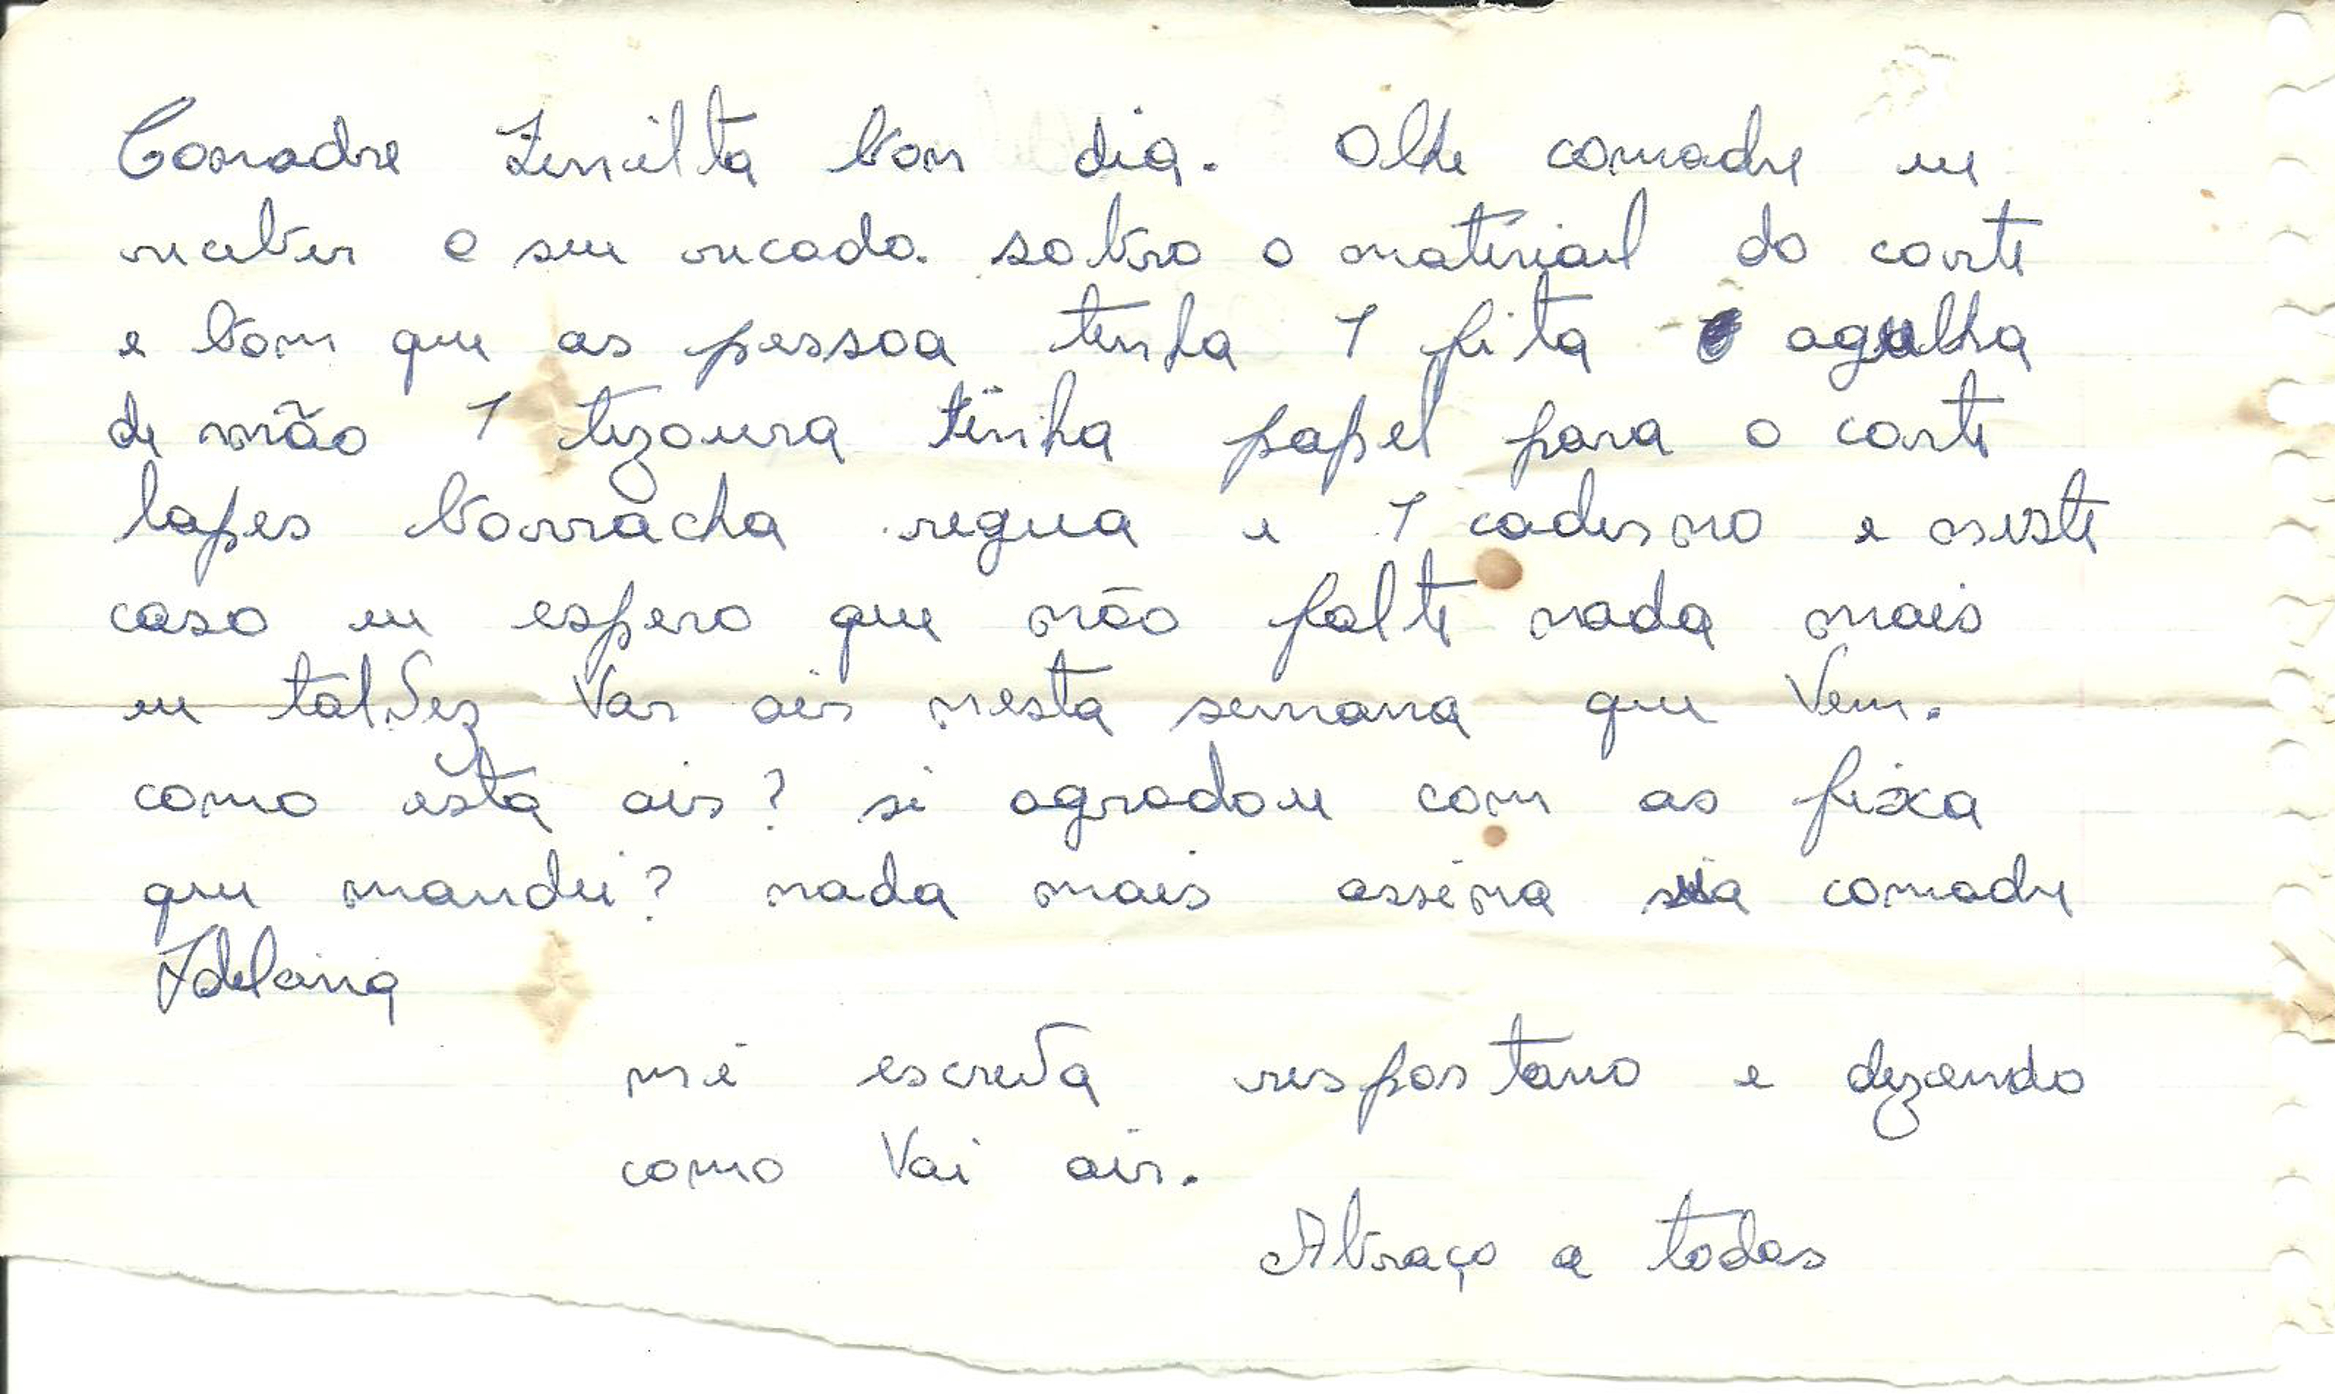 Comadre Zenilta bom dia. Olhe comadre eu
receber o seu recado. sobro o material do corte
e bom que as pessoa tenha 1 fita agulha
de mão 1 tizoura tinha papel para o corte
lapes borracha regua e 1 caderno e neste
caso eu espero que não falte nada mais
eu talvez var air nesta semana que Vem.
como esta air? si agradou com as fixa
que mandei? nada mais assina sua comadre
Idelaina
mé escreva respostano e dizendo
como Vai air.
Abraço a todas